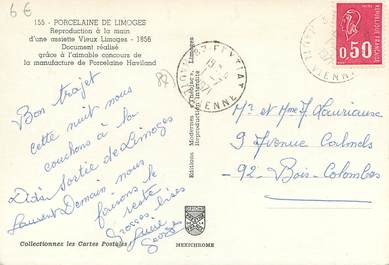 6€
155 - PORCELAINE DE LIMOGES
Reproduction à la main
d'une assiette Vieux Limoges - 1856
Document réalisé
grâce à l'aimable concours de
la manufacture de Porcelaine Haviland
Bon trajet
cette nuit nous
couchons à la
Sortie de Limoges
Didi
Laurent Demain nous
ferons le
reste
Grosses bises
Lucie
Georges
Collectionnez les Cartes Postales
Editions Modernes "Théojac", Limoges
Reproduction interdite
MEXICHROME
87 FEYTIAT
VIENNE
0,50
Mr et Mme
9 Avenue
92 - Bois-Colombes